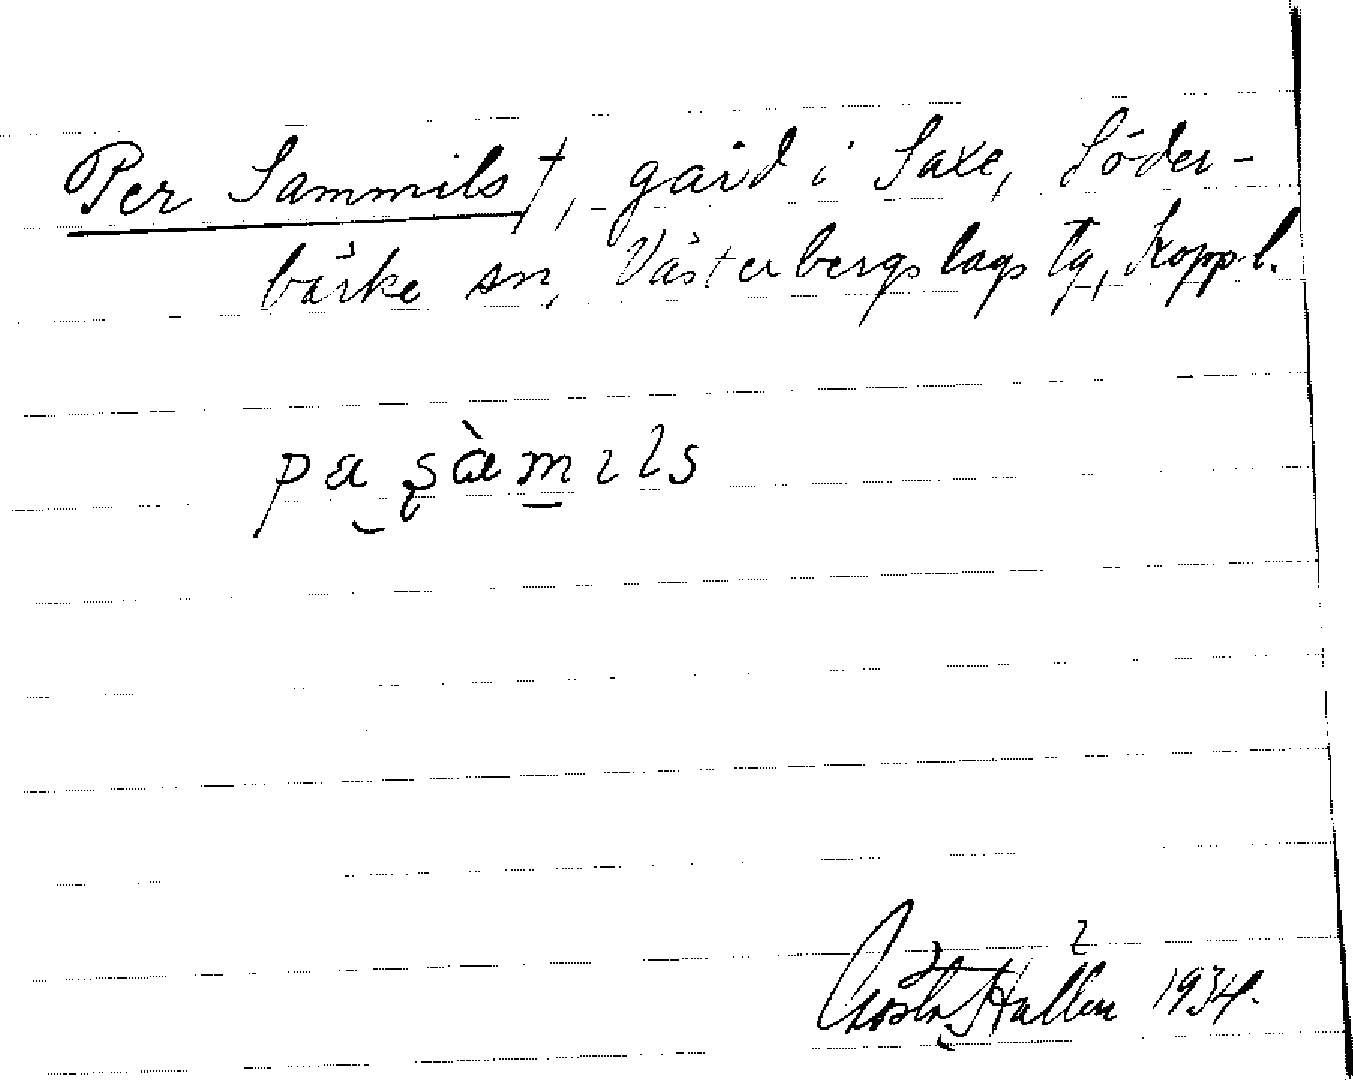 Per Sammils †, gård i Saxe, Söder-
bärke sn, Västerbergslags tg, Koppl.
pɛ sàmɩls
Gösta Hallén 1934.